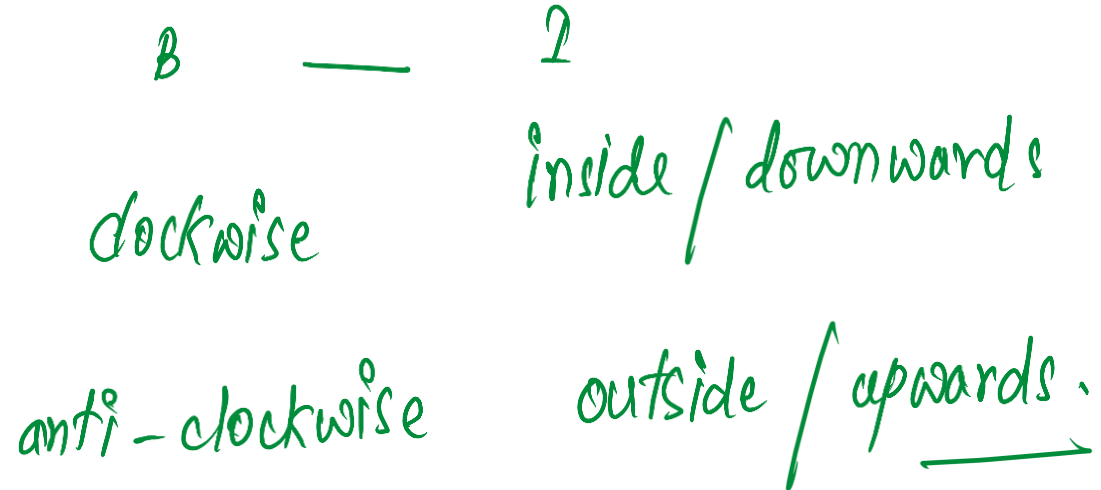 B — I
clockwise inside / downwards
anti-clockwise outside / upwards.